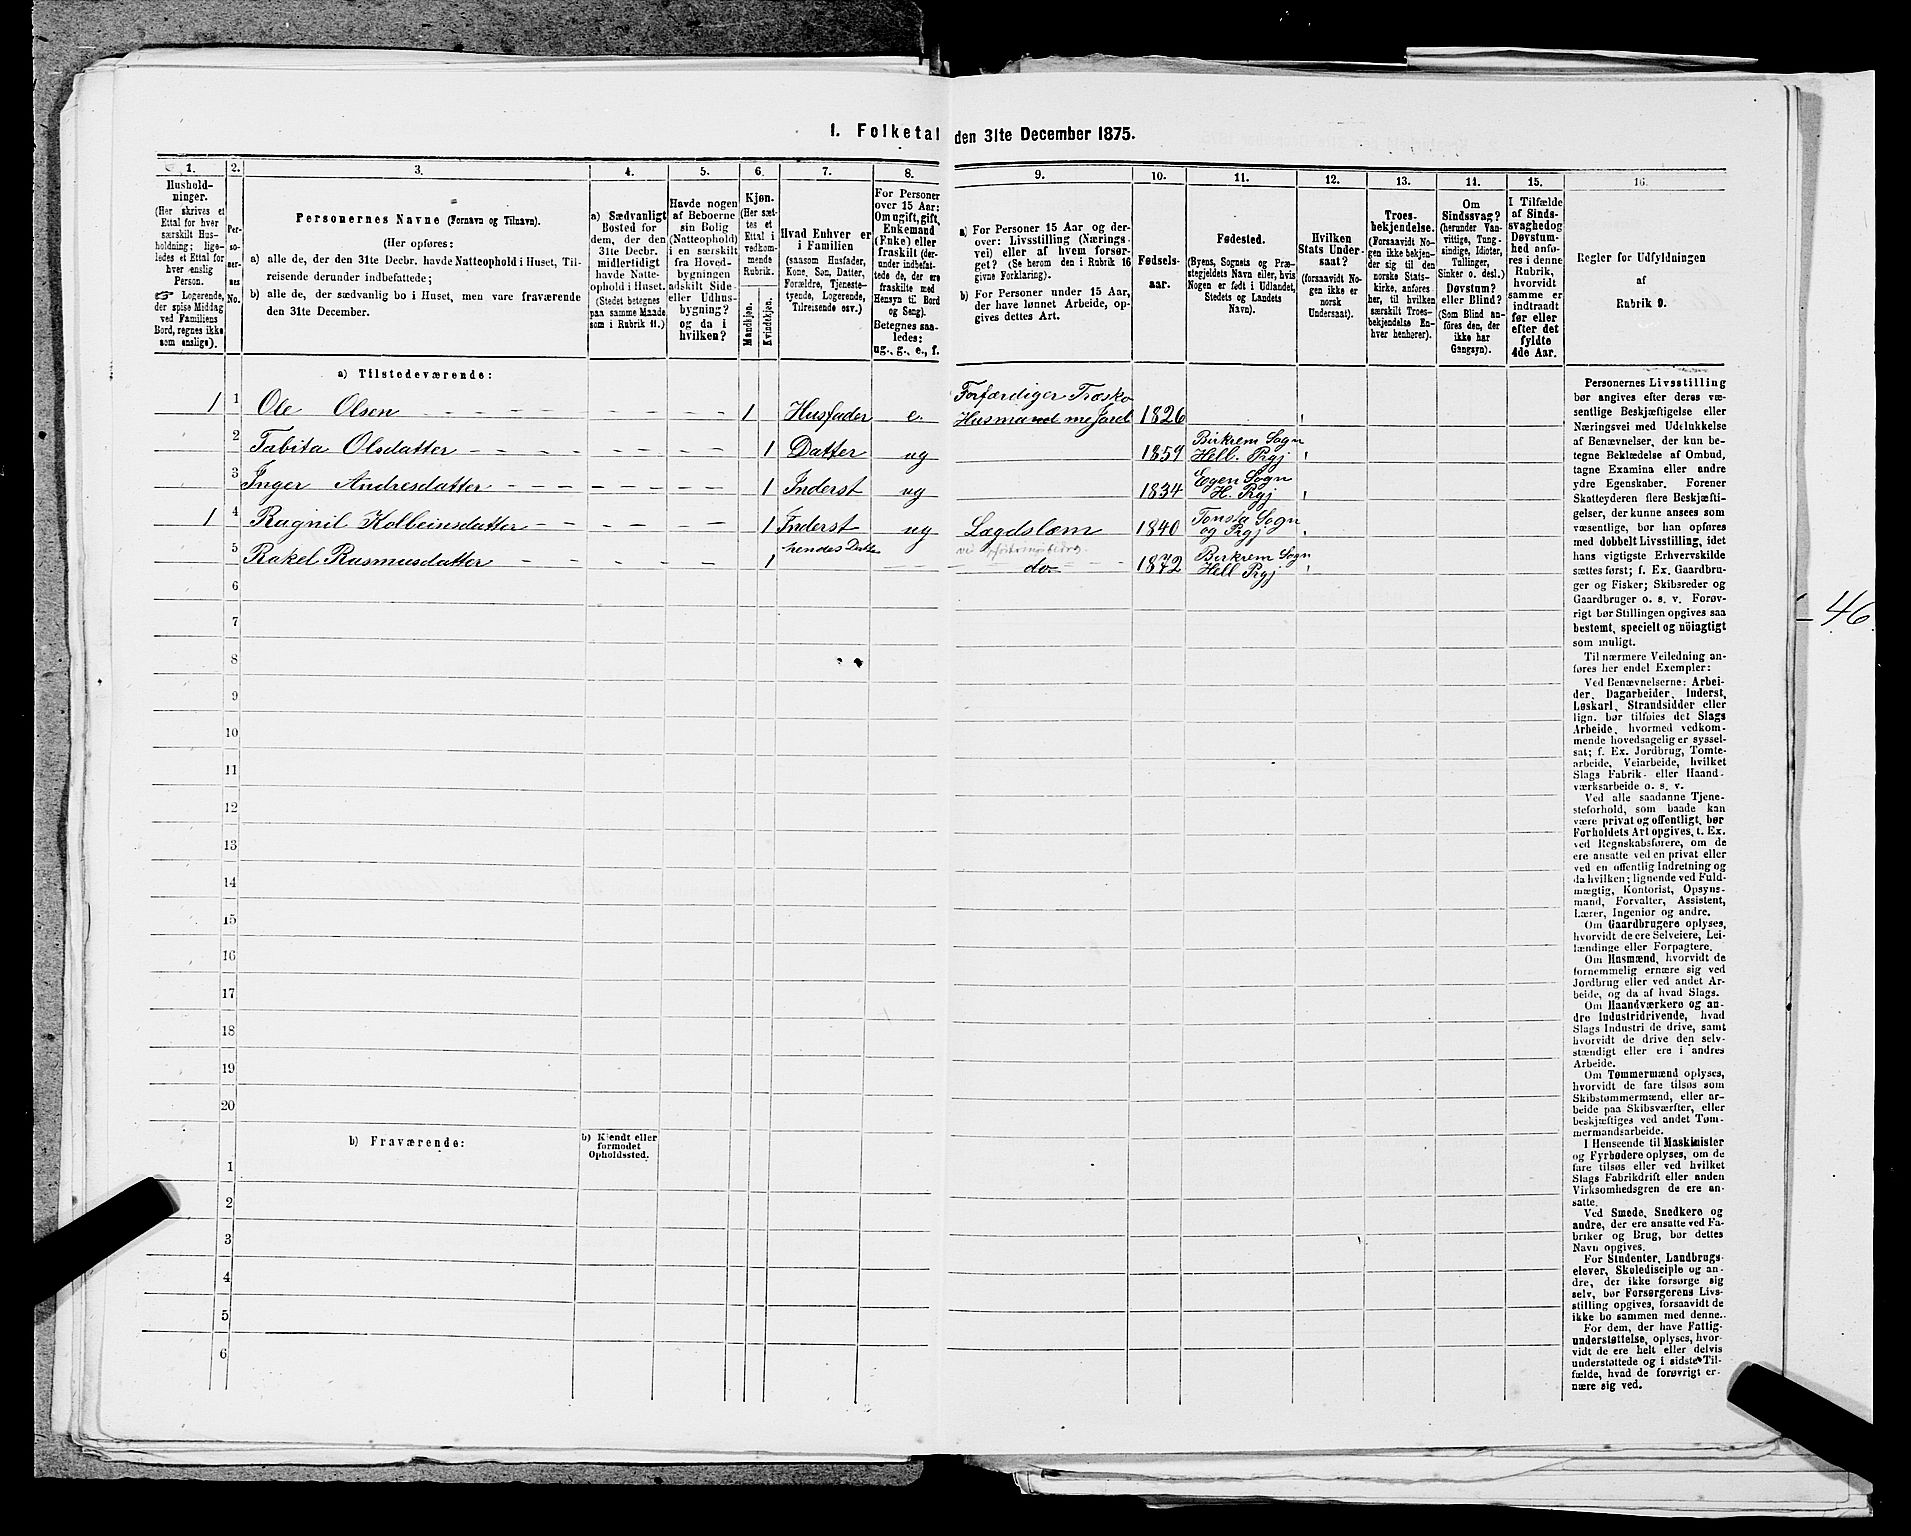 1. Folketal den 31te December 1875.
1. 2. 3. 4. 5. 6. 7. 8. 9. 10. 11. 12. 13. 14. 15. 16.
Hushold-
ninger.
(Her skrives et
Ettal for hver
særskilt Hus-
holdning; lige-
ledes et Ettal for
hver enslig
Person.
☞ Logerende,
der spise Middag
ved Familiens
Bord, regnes ikke
som enslige).
Per-
so-
ner-
nes
No.
Personernes Navne (Fornavn og Tilnavn).
(Her opføres:
a) alle de, der den 31te Decbr. havde Natteophold i Huset, Til-
reisende derunder indbefattede;
b) alle de, der sædvanlig bo i Huset, men vare fraværende
den 31te December.
a) Sædvanligt
Bosted for
dem, der den
31te Decbr.
midlertidigt
havde Natte-
ophold i Huset.
(Stedet betegnes
paa samme Maade
som i Rubrik 11.)
Havde nogen
af Beboerne
sin Bolig
(Natteophold)
i en særskilt
fra Hoved-
bygningen
adskilt Side-
eller Udhus-
bygning?
og da i
hvilken?
Kjøn.
(Her sæt-
tes et
Ettal i
vedkom-
mende
Rubrik.
Mandkjøn.
Kvindkjøn.
Hvad Enhver er
i Familien
(saasom Husfader,
Kone, Søn, Datter,
Forældre, Tjeneste-
tyende, Logerende,
Tilreisende osv.)
For Personer
over 15 Aar:
Om ugift, gift,
Enkemand
(Enke) eller
fraskilt (der-
under indbefat-
tede de, der ere
fraskilte med
Hensyn til Bord
og Seng).
Betegnes saa-
ledes:
ug., g., e., f.
a) For Personer 15 Aar og der-
over: Livsstilling (Nærings-
vei) eller af hvem forsør-
get? (Se herom den i Rubrik 16
givne Forklaring).
b) For Personer under 15 Aar,
der have lønnet Arbeide, op-
gives dettes Art.
Fødsels-
aar.
Fødested.
(Byens, Sognets og Præ-
stegjeldets Navn eller, hvis
Nogen er født i Udlandet,
Stedets og Landets
Navn).
Hvilken
Stats Under-
saat?
(forsaavidt No-
gen ikke er
norsk
Undersaat).
Troes-
bekjendelse.
(Forsaavidt No-
gen ikke bekjen-
der sig til den
norske Stats-
kirke, anføres
her, til hvilken
særskilt Troes-
bekjendelse En-
hver henhører).
Om
Sindssvag?
(herunder Van-
vittige, Tung-
sindige, Idioter,
Tullinger,
Sinker o. desl.)
Døvstum?
eller Blind?
(Som Blind an-
føres den, der
ikke har
Gangsyn).
I Tilfælde
af Sinds-
svaghed og
Døvstum-
hed anfø-
res i denne
Rubrik,
hvorvidt
samme er
indtraadt
før eller
efter det
fyldte
4de Aar.
Regler for Udfyldningen
af
Rubrik 9.
a) Tilstedeværende:
1 1 Ole Olsen 1 Husfader e. Forfærdiger Træsko
Husmand me Jord 1826
2 Tabita Olsdatter 1 Datter ug 1859 Birkrem Sogn
Hell. Prgj
3 Inger Andresdatter 1 Inderst ug 1834 Egen Sogn
H. Prgj
1 4 Ragnil Kolbeinsdatter 1 Inderst ug Lægdslæm 1840 Tonsta Sogn
og Prgj
5 Rakel Rasmusdatter 1 hendes Datter do 1872 Birkrem Sogn
Hell Prgj
6
7
8
9
10
11
12
13
14
15
16
17
18
19
20
b) Fraværende:
b) Kjendt eller
formodet
Opholdssted.
1
2
3
4
5
6
Personernes Livsstilling
bør angives efter deres væ-
sentlige Beskjæftigelse eller
Næringsvei med Udelukkelse
af Benævnelser, der kun be-
tegne Beklædelse af Ombud,
tagne Examina eller andre
ydre Egenskaber. Forener
Skatteyderen flere Beskjæfti-
gelser, der kunne ansees som
væsentlige, bør han opføres
med dobbelt Livsstilling, idet
hans vigtigste Erhvervskilde
sættes først; f. Ex. Gaardbru-
ger og Fisker; Skibsreder og
Gaardbruger o. s. v. Forøv-
rigt bør Stillingen opgives saa
bestemt, specielt og nöiagtigt
som muligt.
Til nærmere Veiledning an-
føres her endel Exempler:
Ved Benævnelserne: Arbei-
der, Dagarbeider, Inderst,
Løskarl, Strandsidder eller
lign. bør tilføies det Slags
Arbeide, hvormed vedkom-
mende hovedsagelig er syssel-
sat; f. Ex. Jordbrug, Tomte-
arbeide, Veiarbeide, hvilket
Slags Fabrik- eller Haand-
værksarbeide o. s. v.
Ved alle saadanne Tjene-
steforhold, som baade kan
være privat og offentligt, bør
Forholdets Art opgives, t. Ex.
ved Regnskabsførere, om de
ere ansatte ved en privat eller
ved en offentlig Indretning og
da hvilken; lignende ved Fuld-
mægtig, Kontorist, Opsyns-
mand, Forvalter, Assistent,
Lærer, Ingeniør og andre.
Om Gaardbrugere oplyses,
hvorvidt de ere Selveiere, Lei-
lændinge eller Forpagtere.
Om Husmænd, hvorvidt de
fornemmelig ernære sig ved
Jordbrug eller ved andet Ar-
beide, og da af hvad Slags.
Om Haandværkere og an-
dre Industridrivende, hvad
Slags Industri de drive, samt
hvorvidt de drive den selv-
stændigt eller ere i andres
Arbeide.
Om Tømmermænd oplyses,
hvorvidt de fare tilsøs som
Skibstømmermænd, eller ar-
beide paa Skibsværfter, eller
beskjæftiges ved andet Tøm-
mermandsarbeide.
I Henseende til Maskinister
og Fyrbødere oplyses, om de
fare tilsøs eller ved hvilket
Slags Fabrikdrift eller anden
Virksomhedsgren de ere an-
satte.
Ved Smede, Snedkere og
andre, der ere ansatte ved Fa-
briker og Brug, bør dettes
Navn opgives.
For Studenter, Landbrugs-
elever, Skoledisciple og an-
dre, der ikke forsørge sig
selv, bør Forsørgerens Livs-
stilling opgives, forsaavidt de
ikke bo sammen med denne.
For dem, der have Fattig-
understøttelse, oplyses, hvor-
vidt de ere helt eller delvis
understøttede og i sidste Til-
fælde, hvad de forøvrigt er-
nære sig ved.
46.